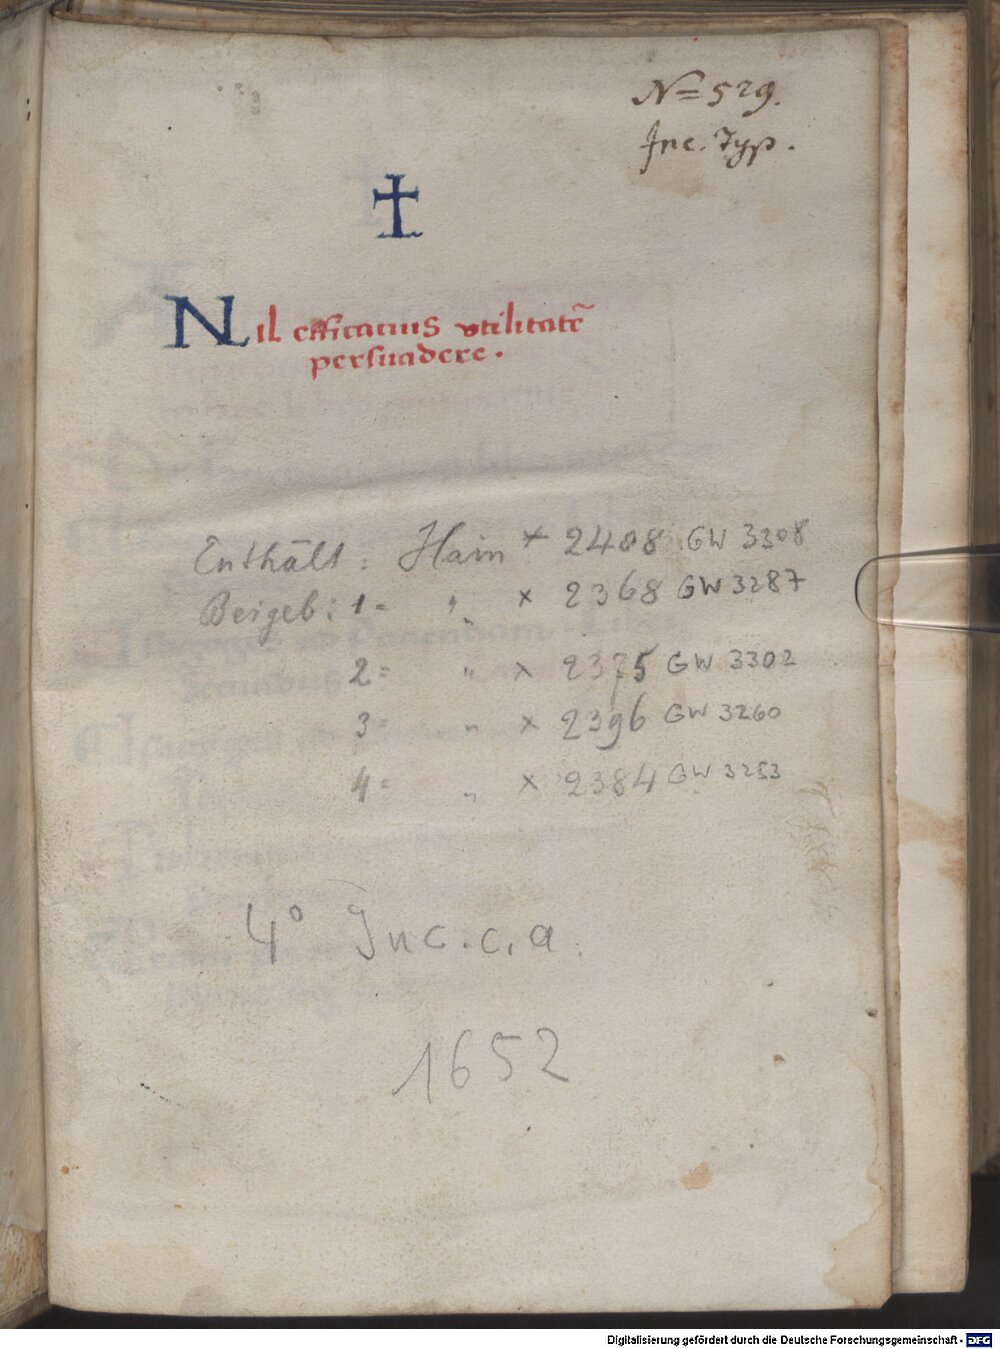 N=529.
Inc. Typ.
Nil efficatius vtilitatē
persuadere.
Enthält: Hain × 2408 GW 3308
Beigeb: 1= " × 2368 GW 3287
2= " × 2375 GW 3302
3= " × 2396 GW 3260
4= " × 2384 GW 3253
4° Inc. c. a.
1652
Digitalisierung gefördert durch die Deutsche Forschungsgemeinschaft - DFG